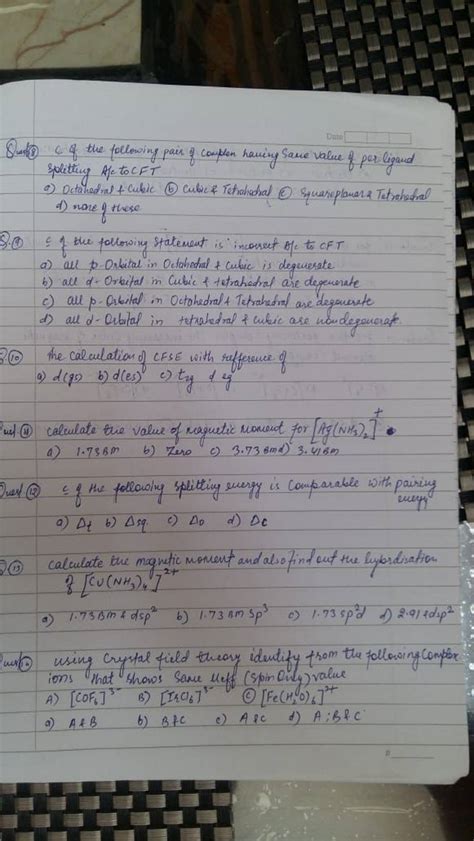 Date
Ques (8) c of the following pair of complex having same value of per ligand
splitting A/c to CFT
a) Octahedral & Cubic (b) Cubic & Tetrahedral (c) Squareplanar & Tetrahedral
d) none of these
(9) c of the following statement is incorrect A/c to CFT
a) all p-Orbital in Octahedral & Cubic is degenerate
b) all d-Orbital in Cubic & tetrahedral are degenerate
c) all p-Orbital in Octahedral & Tetrahedral are degenerate
d) all d-Orbital in tetrahedral & cubic are nondegenerate.
(10) the calculation of CFSE with refference of
a) d(gs) b) d(es) c) t2g & eg
Ques (11) calculate the value of magnetic moment for [Ag(NH3)2]+
a) 1.73 BM b) Zero c) 3.73 BM d) 3.41 BM
Ques (12) c of the following splitting energy is comparable with pairing
energy
a) Δt b) Δsq c) Δo d) Δc
(13) calculate the magnetic moment and also find out the hybridisation
of [Cu(NH3)4]2+
a) 1.73 BM & dsp2 b) 1.73 BM sp3 c) 1.73 sp2d d) 2.91 & dsp2
using Crystal field theory identify from the following complex
ions that shows same μeff (spin only) value
A) [CoF6]3- B) [IrCl6]3- C) [Fe(H2O)6]2+
a) A & B b) B & C c) A & C d) A, B & C